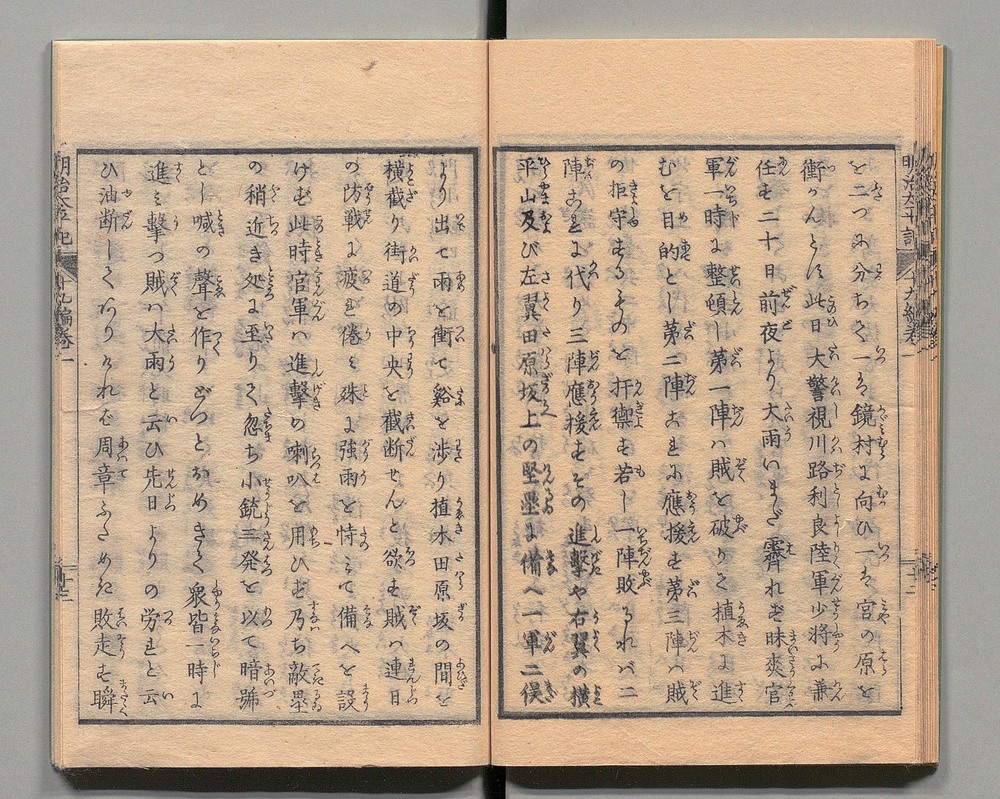 を二つに分ちて一は鏡村に向ひ一は宮の原を
衝かんとす此日大警視川路利良陸軍少将に兼
任す二十日前夜より大雨いまだ霽れず昧爽官
軍一時に整頓し第一陣ハ賊を破りて植木に進
むを目的とし第二陣これに應援す第三陣ハ賊
の拒守するものを扞禦す若し一陣敗るれバ二
陣これに代り三陣應援すその進撃や右翼の横
平山及び左翼田原坂上の堅壘に備へ一軍二俣
より出て雨を衝て谿を渉り植木田原坂の間を
横截り街道の中央を截断せんと欲す賊ハ連日
の防戦に疲れ倦ミ殊に強雨を恃ミて備へを設
けず此時官軍ハ進撃の喇叭を用ひず乃ち敵壘
の稍近き処に至りて忽ち小銃三発を以て暗號
とし喊の聲を作りどつとおめきて衆皆一時に
進ミ撃つ賊ハ大雨と云ひ先日よりの労れと云
ひ油断してありけれバ周章ふためき敗走す瞬
明治太平記
十九編巻一